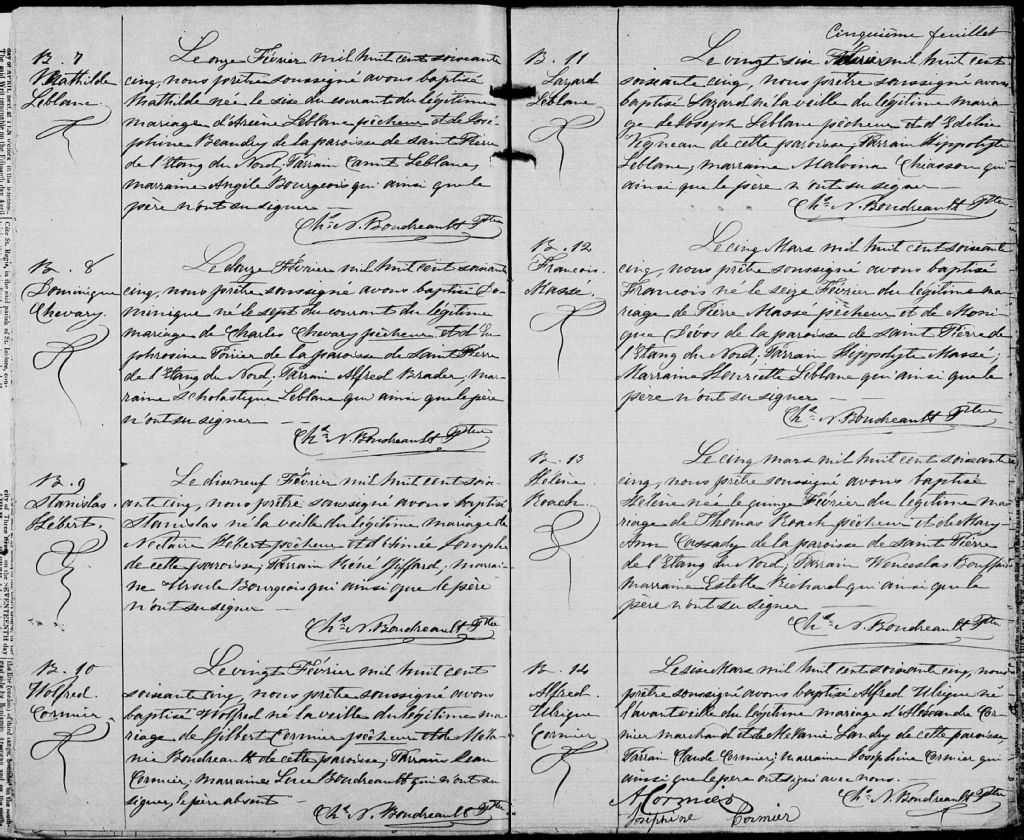 B. 7
Mathilde
Leblanc
Le onze Février mil huit cent soixante
cinq, nous prêtre soussigné avons baptisé
Mathilde née le six du courant du légitime
mariage d'Arsène Leblanc pêcheur et de José-
phine Beaudry de la paroisse de saint Pierre
de l'Etang du Nord; Parrain Camil Leblanc,
marraine Angèle Bourgeois qui ainsi que le
père n'ont su signer —
Chs. N. Boudreault Ptre
B. 8
Dominique
Chevary.
Le douze Février mil huit cent soixante
cinq, nous prêtre soussigné avons baptisé Do-
minique né le sept du courant du légitime
mariage de Charles Chevary pêcheur et d'Eu-
phrosine Poirier de la paroisse de saint Pierre
de l'Etang du Nord; Parrain Alfred Brader; mar-
raine Scholastique Leblanc qui ainsi que le père
n'ont su signer —
Chs. N. Boudreault Ptre
B. 9
Stanislas
Hebert.
Le dixneuf Février mil huit cent soix-
ante cinq, nous prêtre soussigné avons baptisé
Stanislas né la veille du légitime mariage de
Nectaire Hébert pêcheur et d'Esimée Longhe
de cette paroisse; Parrain René Giffard, marrai-
ne Ursule Bourgeois qui ainsi que le père
n'ont su signer —
Chs. N. Boudreault Ptre
B. 10
Wolfred
Cormier
Le vingt Février mil huit cent
soixante cinq, nous prêtre soussigné avons
baptisé Wolfred né la veille du légitime ma-
riage de Gilbert Cormier pêcheur et de Méla-
nie Boudreault de cette paroisse; Parrain Jean
Cormier; marraine Luce Boudreault qui n'ont su
signer, le père absent —
Chs. N. Boudreault Ptre
Cinquième feuillet
B. 11
Lazard
Leblanc
Le vingt six Février mil huit cent
soixante cinq, nous prêtre soussigné avons
baptisé Lazard né la veille du légitime maria-
ge de Joseph Leblanc pêcheur et d'Edèlise
Vigneau de cette paroisse; Parrain Hippolyte
Leblanc; marraine Malvina Chiasson qui
ainsi que le père n'ont su signer —
Chs. N. Boudreault Ptre
B. 12
Francois
Massé.
Le cinq Mars mil huit cent soixante
cinq, nous prêtre soussigné avons baptisé
Francois né le seize Février du légitime ma-
riage de Pierre Massé pêcheur et de Moni-
que Devos de la paroisse de saint Pierre de
l'Etang du Nord; Parrain Hippolyte Massé;
Marraine Henriette Leblanc qui ainsi que le
père n'ont su signer —
Chs. N. Boudreault Ptre
B. 13
Hélène
Roach.
Le cinq mars mil huit cent soixante
cinq, nous prêtre soussigné avons baptisé
Hélène née le quinze Février du légitime ma-
riage de Thomas Roach pêcheur et de Mary
Ann Cassady de la paroisse de saint Pierre
de l'Etang du Nord; Parrain Venesslas Bouffard
marraine Estelle Richard qui ainsi que le
père n'ont su signer —
Chs. N. Boudreault Ptre
B. 14
Alfred
Ulrique
Cormier
Le six Mars mil huit cent soixante cinq, nous
prêtre soussigné avons baptisé Alfred Ulrique né
l'avant veille du légitime mariage d'Alexandre Cor-
mier marchand et de Mélanie Landry de cette paroisse,
Parrain Claude Cormier; marraine Josephine Cormier qui
ainsi que le père ont signé avec nous.
A Cormier
Chs. N. Boudreault Ptre
Josephine Cormier